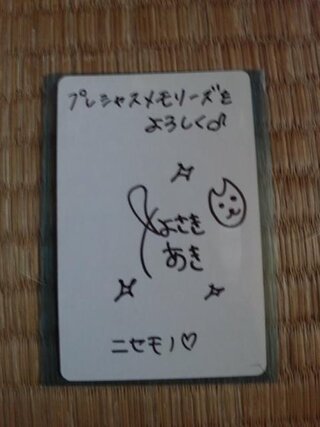 プレシャスメモリーズを
よろしく♂
よさき
あき
ニセモノ♡